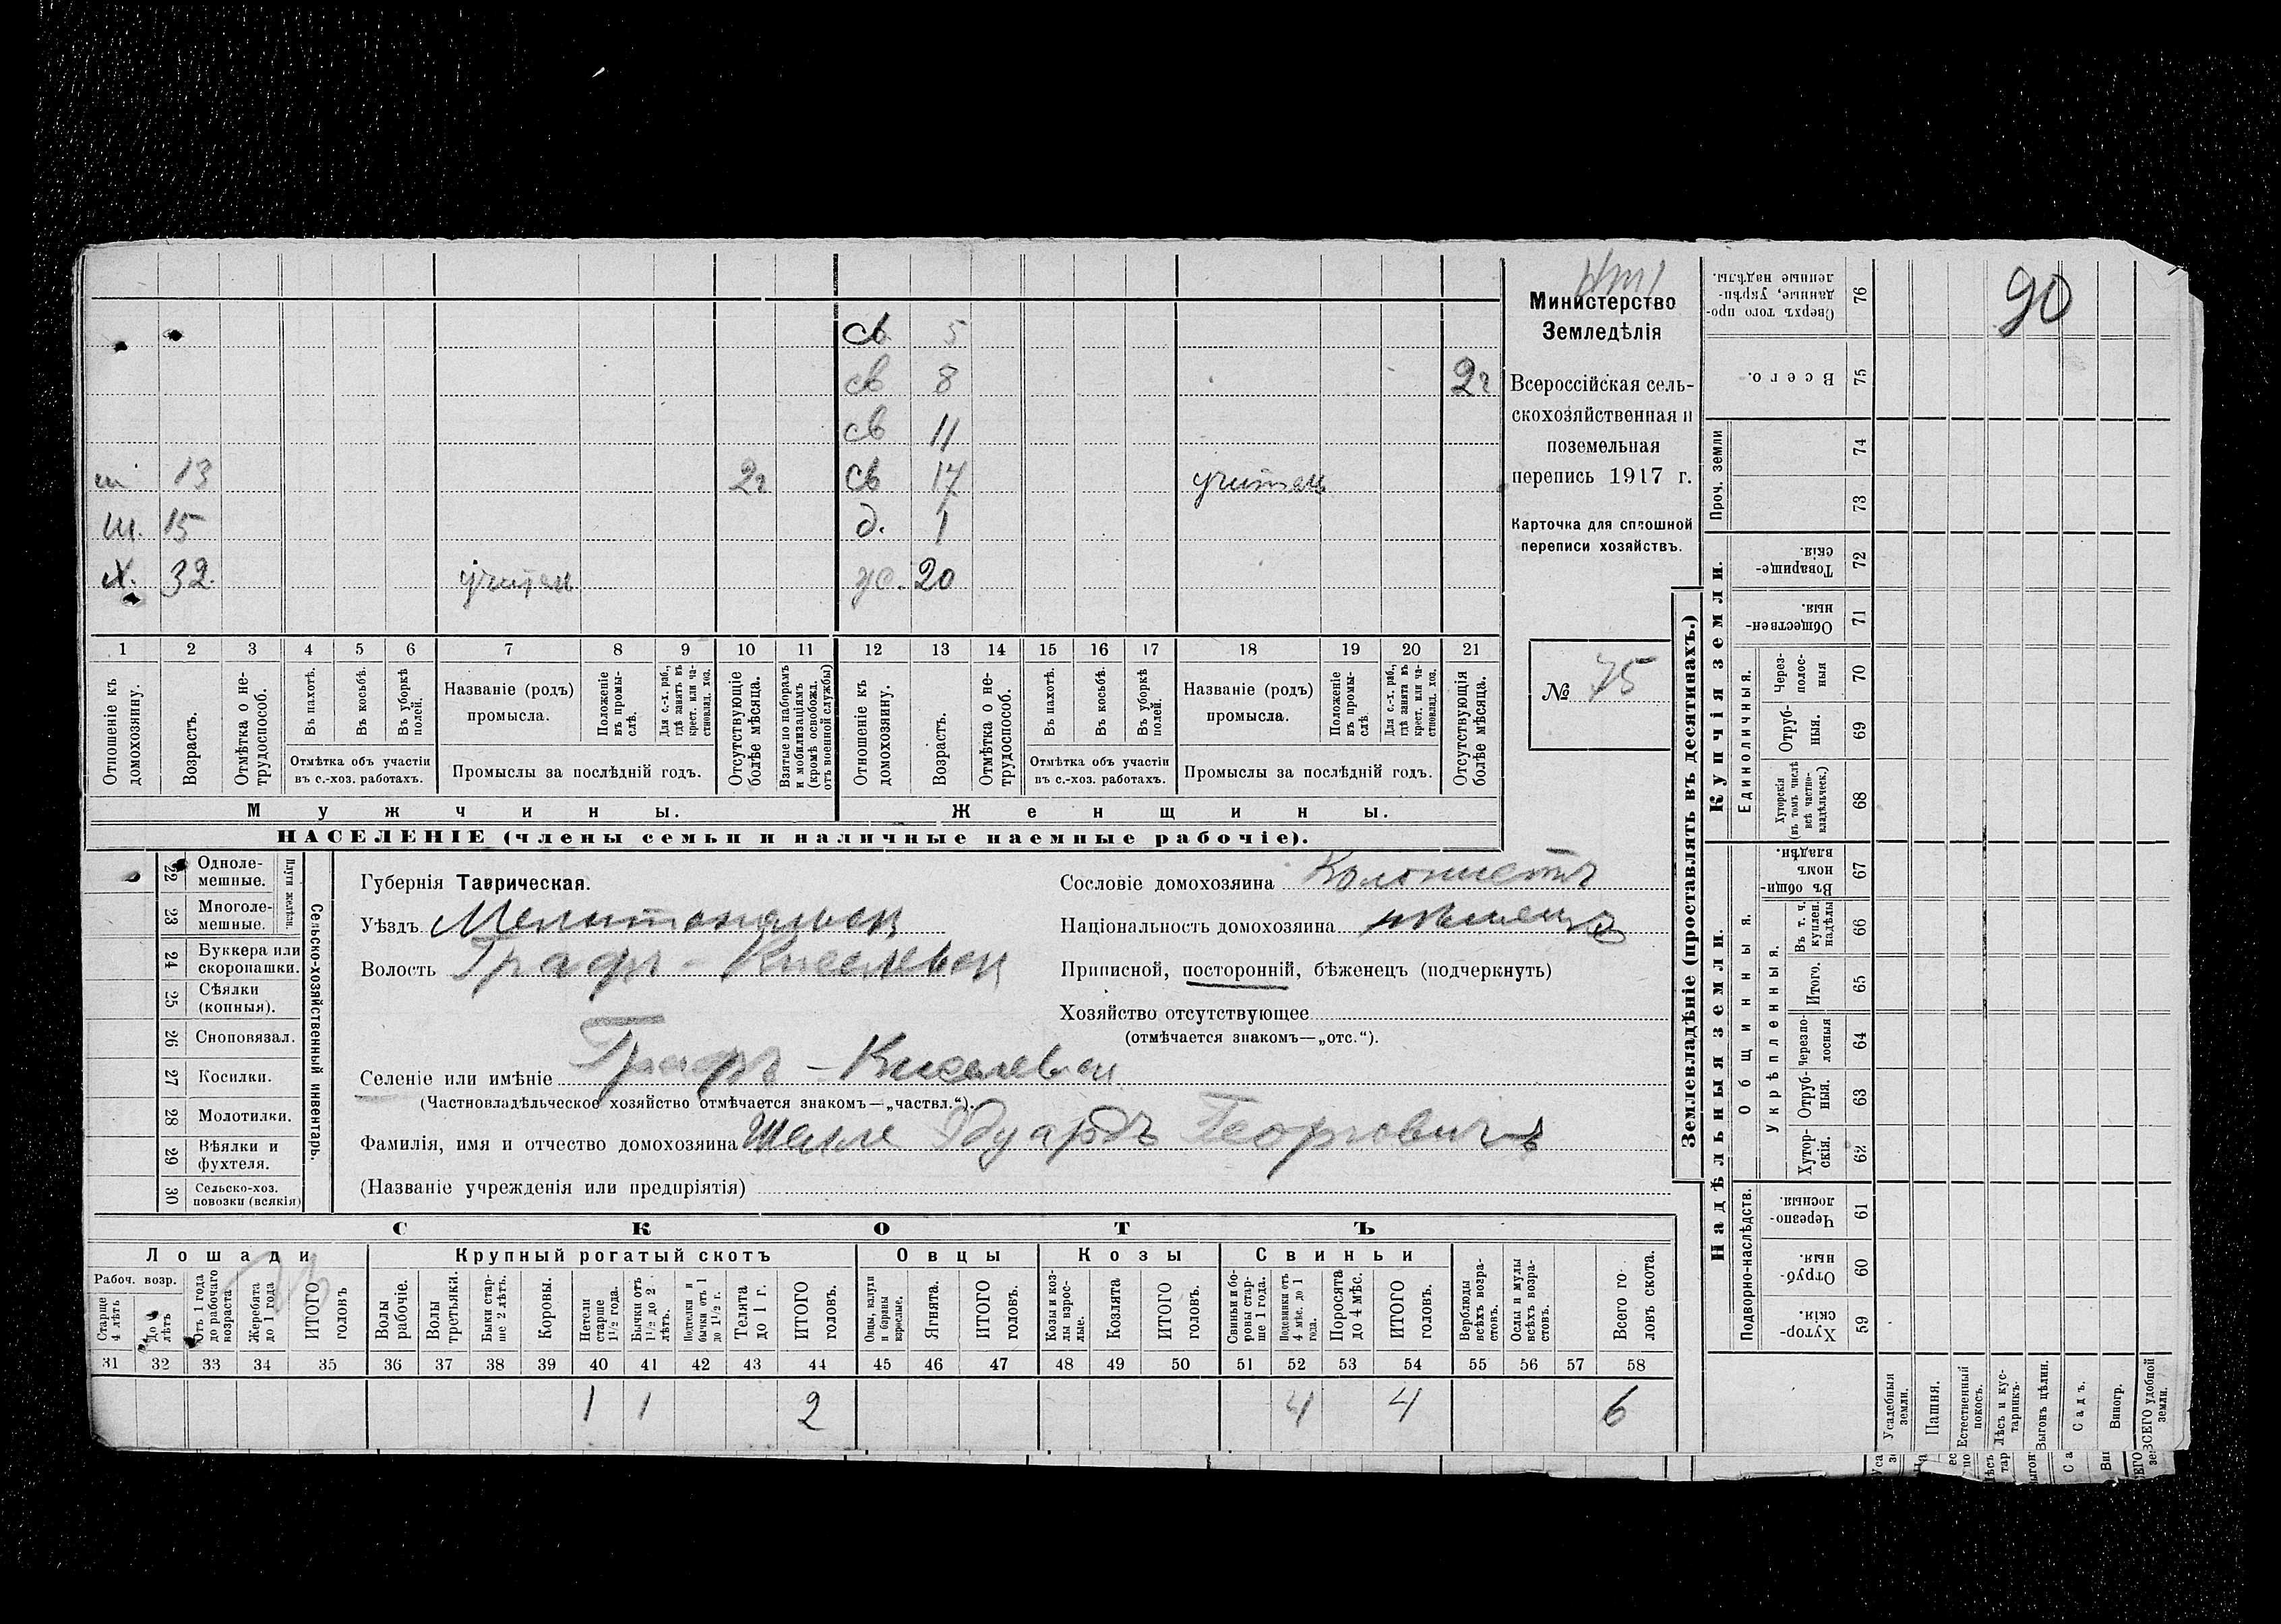 90
Министерство
Земледѣлія
Всероссійская сель-
скохозяйственная и
поземельная
перепись 1917 г.
Карточка для сплошной
переписи хозяйствъ.
№ 75
св 5
св 8 2г
св 11
ш 13 2г св 17 учител
ш. 15 д. 1
х. 32. учитель ж. 20
1 2 3 4 5 6 7 8 9 10 11 12 13 14 15 16 17 18 19 20 21
Отношеніе къ домохозяину.
Возрастъ.
Отмѣтка о не-трудоспособ.
Въ пахотѣ.
Въ косьбѣ.
Въ уборкѣ полей.
Отмѣтка объ участіи
въ с.-хоз. работахъ.
Названіе (родъ)
промысла.
Положеніе въ промы-слѣ.
Для с.-х. раб., гдѣ занятъ въ крест. или ча-стновлад. хоз.
Промыслы за послѣдній годъ.
Отсутствующіе болѣе мѣсяца.
Взятые по наборамъ и мобилизаціямъ (кромѣ освобожд. отъ военной службы)
Отношеніе къ домохозяину.
Возрастъ.
Отмѣтка о не-трудоспособ.
Въ пахотѣ.
Въ косьбѣ.
Въ уборкѣ полей.
Отмѣтка объ участіи
въ с.-хоз. работахъ.
Названіе (родъ)
промысла.
Положеніе въ промы-слѣ.
Для с.-х. раб., гдѣ занята въ крест. или ча-стновлад. хоз.
Промыслы за послѣдній годъ.
Отсутствующія болѣе мѣсяца.
Мужчины. Женщины.
НАСЕЛЕНІЕ (члены семьи и наличные наемные рабочіе).
22 Одноле-мешные.
23 Многоле-мешные.
Плуги желѣзн.
24 Буккера или скоропашки.
25 Сѣялки (конныя).
26 Сноповязал.
27 Косилки.
28 Молотилки.
29 Вѣялки и фухтеля.
30 Сельско-хоз. повозки (всякія)
Сельско-хозяйственный инвентарь.
Губернія Таврическая.
Уѣздъ Мелитопольск
Волость Графъ-Киселевск
Селеніе или имѣніе Графъ-Киселевск
(Частновладѣльческое хозяйство отмѣчается знакомъ—„частвл.“).
Фамилія, имя и отчество домохозяина Шелле Эдуардъ Георговичъ
(Названіе учрежденія или предпріятія)
Сословіе домохозяина Колонистъ
Національность домохозяина нѣмецъ
Приписной, посторонній, бѣженецъ (подчеркнуть)
Хозяйство отсутствующее
(отмѣчается знакомъ—„отс.“).
СКОТЪ
Лошади Крупный рогатый скотъ Овцы Козы Свиньи
Рабоч. возр.
Старше 4 лѣтъ
До 4 лѣтъ
Отъ 1 года до рабочаго возраста
Жеребята до 1 года
ИТОГО головъ
Волы рабочіе.
Волы третьяки.
Быки стар-ше 2 лѣтъ.
Коровы.
Нетели старше 1½ года.
Бычки отъ 1½ до 2 лѣтъ.
Подтелки и бычки отъ 1 до 1½ г.
Телята до 1 г.
ИТОГО головъ.
Овцы, валухи и бараны взрослые.
Ягнята.
ИТОГО головъ.
Козы и коз-лы взрос-лые.
Козлята
ИТОГО головъ.
Свиньи и бо-ровы стар-ше 1 года.
Подсвинки отъ 4 мѣс. до 1 года.
Поросята до 4 мѣс.
ИТОГО головъ.
Верблюды всѣхъ возра-стовъ.
Ослы и мулы всѣхъ возра-стовъ.
Всего го-ловъ скота.
31 32 33 34 35 36 37 38 39 40 41 42 43 44 45 46 47 48 49 50 51 52 53 54 55 56 57 58
1 1 2 4 4 6
Землевладѣніе (проставлять въ десятинахъ.)
Купчія земли.
Надѣльныя земли.
76 Сверхъ того про-данные, укрѣп-ленные надѣлы.
75 Всего.
Проч. земли
74
73
72 Товарище-скія.
71 Обществен-ныя.
Единоличныя.
70 Через-полос-ныя
69 Отруб-ныя.
68 Хуторскія (въ томъ числѣ всѣ частно-владѣльческ.)
Общинныя.
67 Въ общин-номъ владѣн.
Укрѣпленныя.
66 Въ т. ч. куплен. надѣлы
65 Итого.
64 Черезпо-лосныя
63 Отруб-ныя.
62 Хутор-скія.
Подворно-наслѣдств.
61 Черезпо-лосныя.
60 Отруб-ныя.
59 Хутор-скія
Усадебныя земли.
Пашня.
Естественный покосъ.
Лѣсъ и кус-тарникъ.
Выгонъ цѣлин.
Садъ.
Виногр.
ВСЕГО удобной земли.